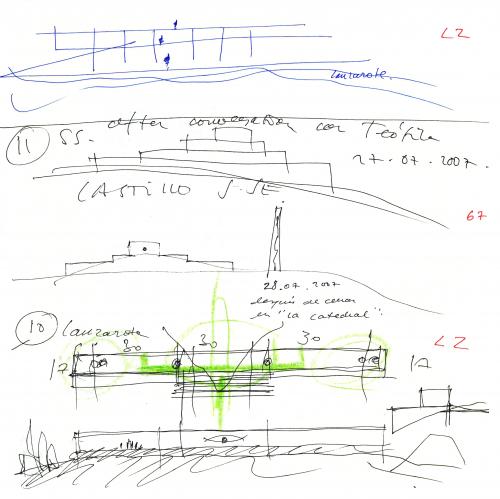 LZ
Lanzarote.
11 SS. after conversation con Teófilo
27.07.2007.
CASTILLO S.SE
67
28.07.2007
después de cenar
en "la catedral".
10 Lanzarote
LZ
30 30 30
17 17